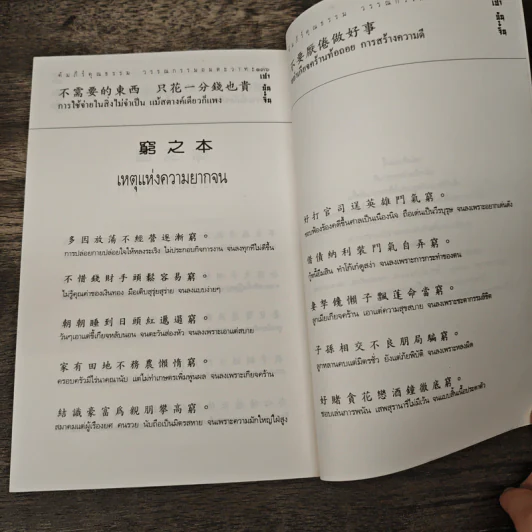 คัมภีร์คุณธรรม วรรณกรรมอมตะวาท
不需要的東西 只花一分錢也貴
การใช้จ่ายในสิ่งไม่จำเป็น แม้สตางค์เดียวก็แพง
窮之本
เหตุแห่งความยากจน
多因放蕩不經營逐漸窮。
การปล่อยกายปล่อยใจให้หลงระเริง ไม่ประกอบกิจการงาน จนลงทุกทีไม่ดีขึ้น
不惜錢財手頭鬆容易窮。
ไม่รู้คุณค่าของเงินทอง มือเติบสุรุ่ยสุร่าย จนลงแบบง่ายๆ
朝朝睡到日頭紅邋遢窮。
วันๆเอาแต่ขี้เกียจหลับนอน จนตะวันส่องหัว จนลงเพราะเอาแต่สบาย
家有田地不務農懶惰窮。
ครอบครัวมีไร่นาคณานับ แต่ไม่ทำเกษตรเพิ่มพูนผล จนลงเพราะเกียจคร้าน
結識豪富為親朋攀高窮。
สมาคมแต่ผู้เรืองยศ คนรวย นับถือเป็นมิตรสหาย จนเพราะความมักใหญ่ใฝ่สูง
คัมภีร์คุณธรรม
不要厭倦做好事
อย่าเกียจคร้านท้อถอย การสร้างความดี
好打官司逞英雄鬥氣窮。
借債納利裝門氣自弄窮。
กู้หนี้ยืมสิน ทำโก้เก๋ดูสง่า จนลงเพราะการกระทำของตน
妻孥懶子飄蓬命當窮。
ลูกเมียเกียจคร้าน เอาแต่ความสุขสบาย จนลงเพราะชะตากรรมลิขิต
子孫相交不良朋局騙窮。
ลูกหลานคบแต่มิตรชั่ว ยังแต่ภัยพิบัติ จนลงเพราะหลงผิด
好賭貪花戀酒鐘徹底窮。
ชอบเล่นการพนัน เสพสุรานารีไม่มีเว้น จนแบบสิ้นเนื้อประดาตัว